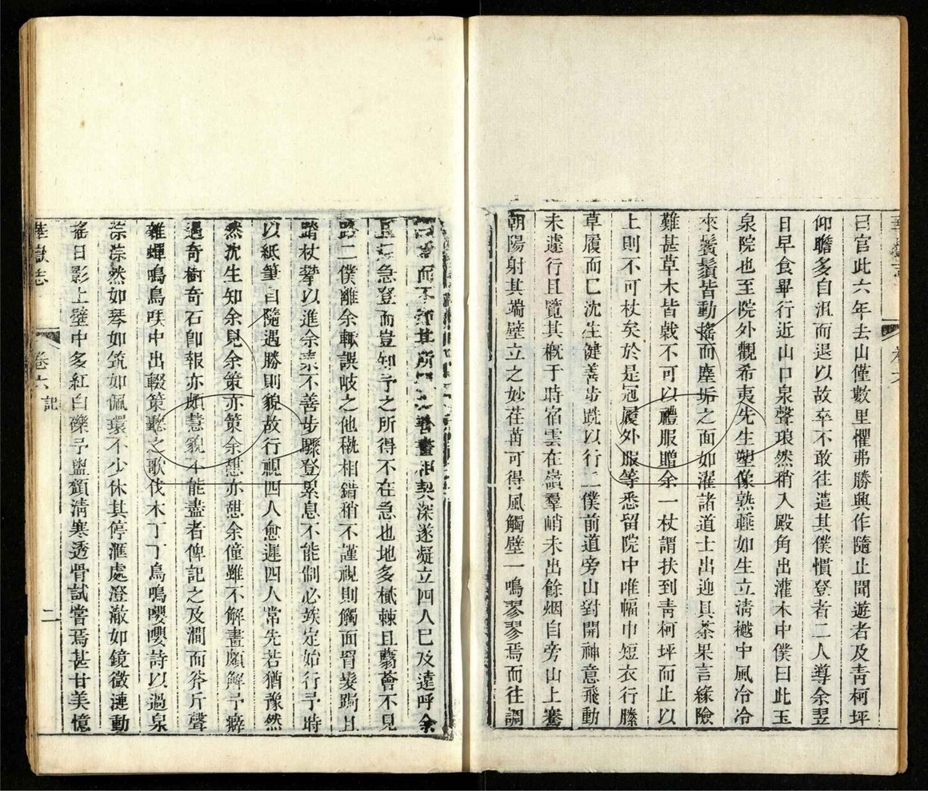 曰官此六年去山僅數里懼弗勝興作隨止聞遊者及青柯坪
仰瞻多自沮而退以故卒不敢往遣其僕慣登者二人導余翌
日早食畢行近山口泉聲琅然稍入殿角出灌木中僕曰此玉
泉院也至院外觀希夷先生塑像熟睡如生立清樾中風泠泠
來鬢鬚皆動搖而塵垢之面如濯諸道士出迎具茶果言緣險
難甚草木皆戟不可以禮服贈余一杖謂扶到青柯坪而止以
上則不可杖矣於是冠履外服等悉留院中唯幅巾短衣行縢
草履而已沈生健善步跣以行二僕前道旁山對開神意飛動
未遽行且覽其概于時宿雲在嶺羣峭未出餘烟自旁山上騫
朝陽射其端壁立之妙荏苒可得風觸壁一鳴翏翏焉而往調
而不 其所 畫 契深遂凝立四人已及遠呼余
急登而豈知予之所得不在急也地多棫棘且翳薈不見
二僕離余輒誤岐之他磴相錯稍不謹視則觸面胃髮踢且
踣杖攀以進余素不善步驟登累息不能制必竢定始行予時
以紙筆自隨遇勝則貌故行視四人愈遲四人常先若猶豫然
然沈生知余見余策亦策余想亦想余僮雖不解畫頗解予癖
遇奇樹奇石卽報亦頗慧貌不能盡者俾記之及澗而斧斤聲
雜蟬鳴鳥哢中出輟策聽之歌伐木丁丁鳥鳴嚶嚶詩以過泉
淙淙然如琴如筑如佩環不少休其停滙處澄澈如鏡微漣動
搖日影上壁中多紅白礫予盥頮清寒透骨試嘗焉甚甘美憶
華嶽志
卷六 記
二